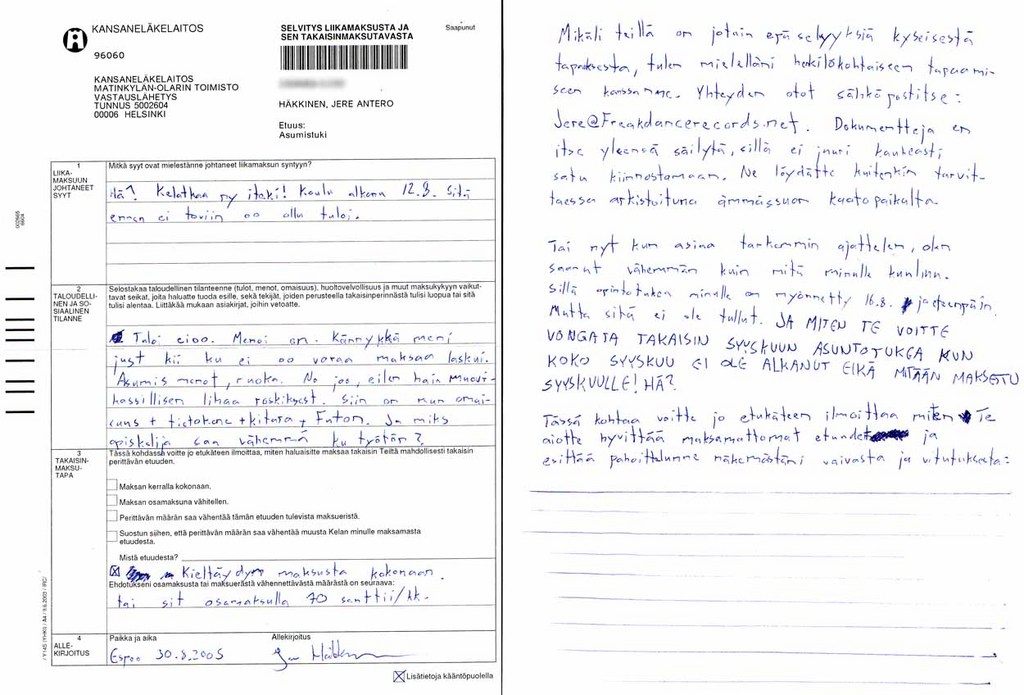 KANSANELÄKELAITOS
96060
KANSANELÄKELAITOS
MATINKYLÄN-OLARIN TOIMISTO
VASTAUSLÄHETYS
TUNNUS 5002604
00006 HELSINKI
SELVITYS LIIKAMAKSUSTA JA
SEN TAKAISINMAKSUTAVASTA
Saapunut
HÄKKINEN, JERE ANTERO
Etuus:
Asumistuki
1
LIIKA-
MAKSUUN
JOHTANEET
SYYT
Mitkä syyt ovat mielestänne johtaneet liikamaksun syntyyn?
itä? Kelatkaa ny iteki! Koulu alkanu 12.9. Sitä
ennen ei toviin oo ollu tuloi.
2
TALOUDELLI-
NEN JA SO-
SIAALINEN
TILANNE
Selostakaa taloudellinen tilanteenne (tulot, menot, omaisuus), huoltovelvollisuus ja muut maksukykyyn vaikut-
tavat seikat, joita haluatte tuoda esille, sekä tekijät, joiden perusteella takaisinperinnästä tulisi luopua tai sitä
tulisi alentaa. Liittäkää mukaan asiakirjat, joihin vetoatte.
Tuloi eioo. Menoi on. Kännykkä meni
just kii ku ei oo varaa maksaa laskui.
Asumis menot, ruoka. No joo, eilen hain muovi-
kassillisen lihaa roskiksest. Siin on mun omai-
suus + tietokone + kitara + Futon. Ja miks
opiskelija saa vähemmä ku työtön?
3
TAKAISIN-
MAKSU-
TAPA
Tässä kohdassa voitte jo etukäteen ilmoittaa, miten haluaisitte maksaa takaisin Teiltä mahdollisesti takaisin
perittävän etuuden.
Maksan kerralla kokonaan.
Maksan osamaksuna vähitellen.
Perittävän määrän saa vähentää tämän etuuden tulevista maksueristä.
Suostun siihen, että perittävän määrän saa vähentää muusta Kelan minulle maksamasta
etuudesta.
Mistä etuudesta?
Kieltäydyn maksusta kokonaan.
Ehdotukseni osamaksusta tai maksuerästä vähennettävästä määrästä on seuraava:
tai sit osamaksulla 70 senttii/kk.
4
ALLE-
KIRJOITUS
Paikka ja aika
Allekirjoitus
Espoo 30.8.2005
Lisätietoja kääntöpuolella
Mikäli teillä on jotain epäselvyyksiä kyseisestä
tapauksesta, tulen mielelläni henkilökohtaiseen tapaami-
seen kanssanne. Yhteyden otot sähköpostitse:
Jere@Freakdancerecords.net. Dokumentteja en
itse yleensä säilytä, sillä ei juuri kauheasti
satu kiinnostamaan. Ne löydätte kuitenkin tarvit-
taessa arkistoituina ämmässuon kaatopaikalta.
Tai nyt kun asiaa tarkemmin ajattelen, olen
saanut vähemmän kuin mitä minulle kuuluu.
Sillä opintotukea minulle on myönnetty 16.8. jaeteenpäin.
Mutta sitä ei ole tullut. JA MITEN TE VOITTE
VONGATA TAKAISIN SYYSKUUN ASUNTOTUKEA KUN
KOKO SYYSKUU EI OLE ALKANUT EIKÄ MITÄÄN MAKSETTU
SYYSKUULLE! HÄ?
Tässä kohtaa voitte jo etukäteen ilmoittaa miten Te
aiotte hyvittää maksamattomat etuudet ja
esittää pahoittelunne näkemästäni vaivasta ja vitutuksesta: